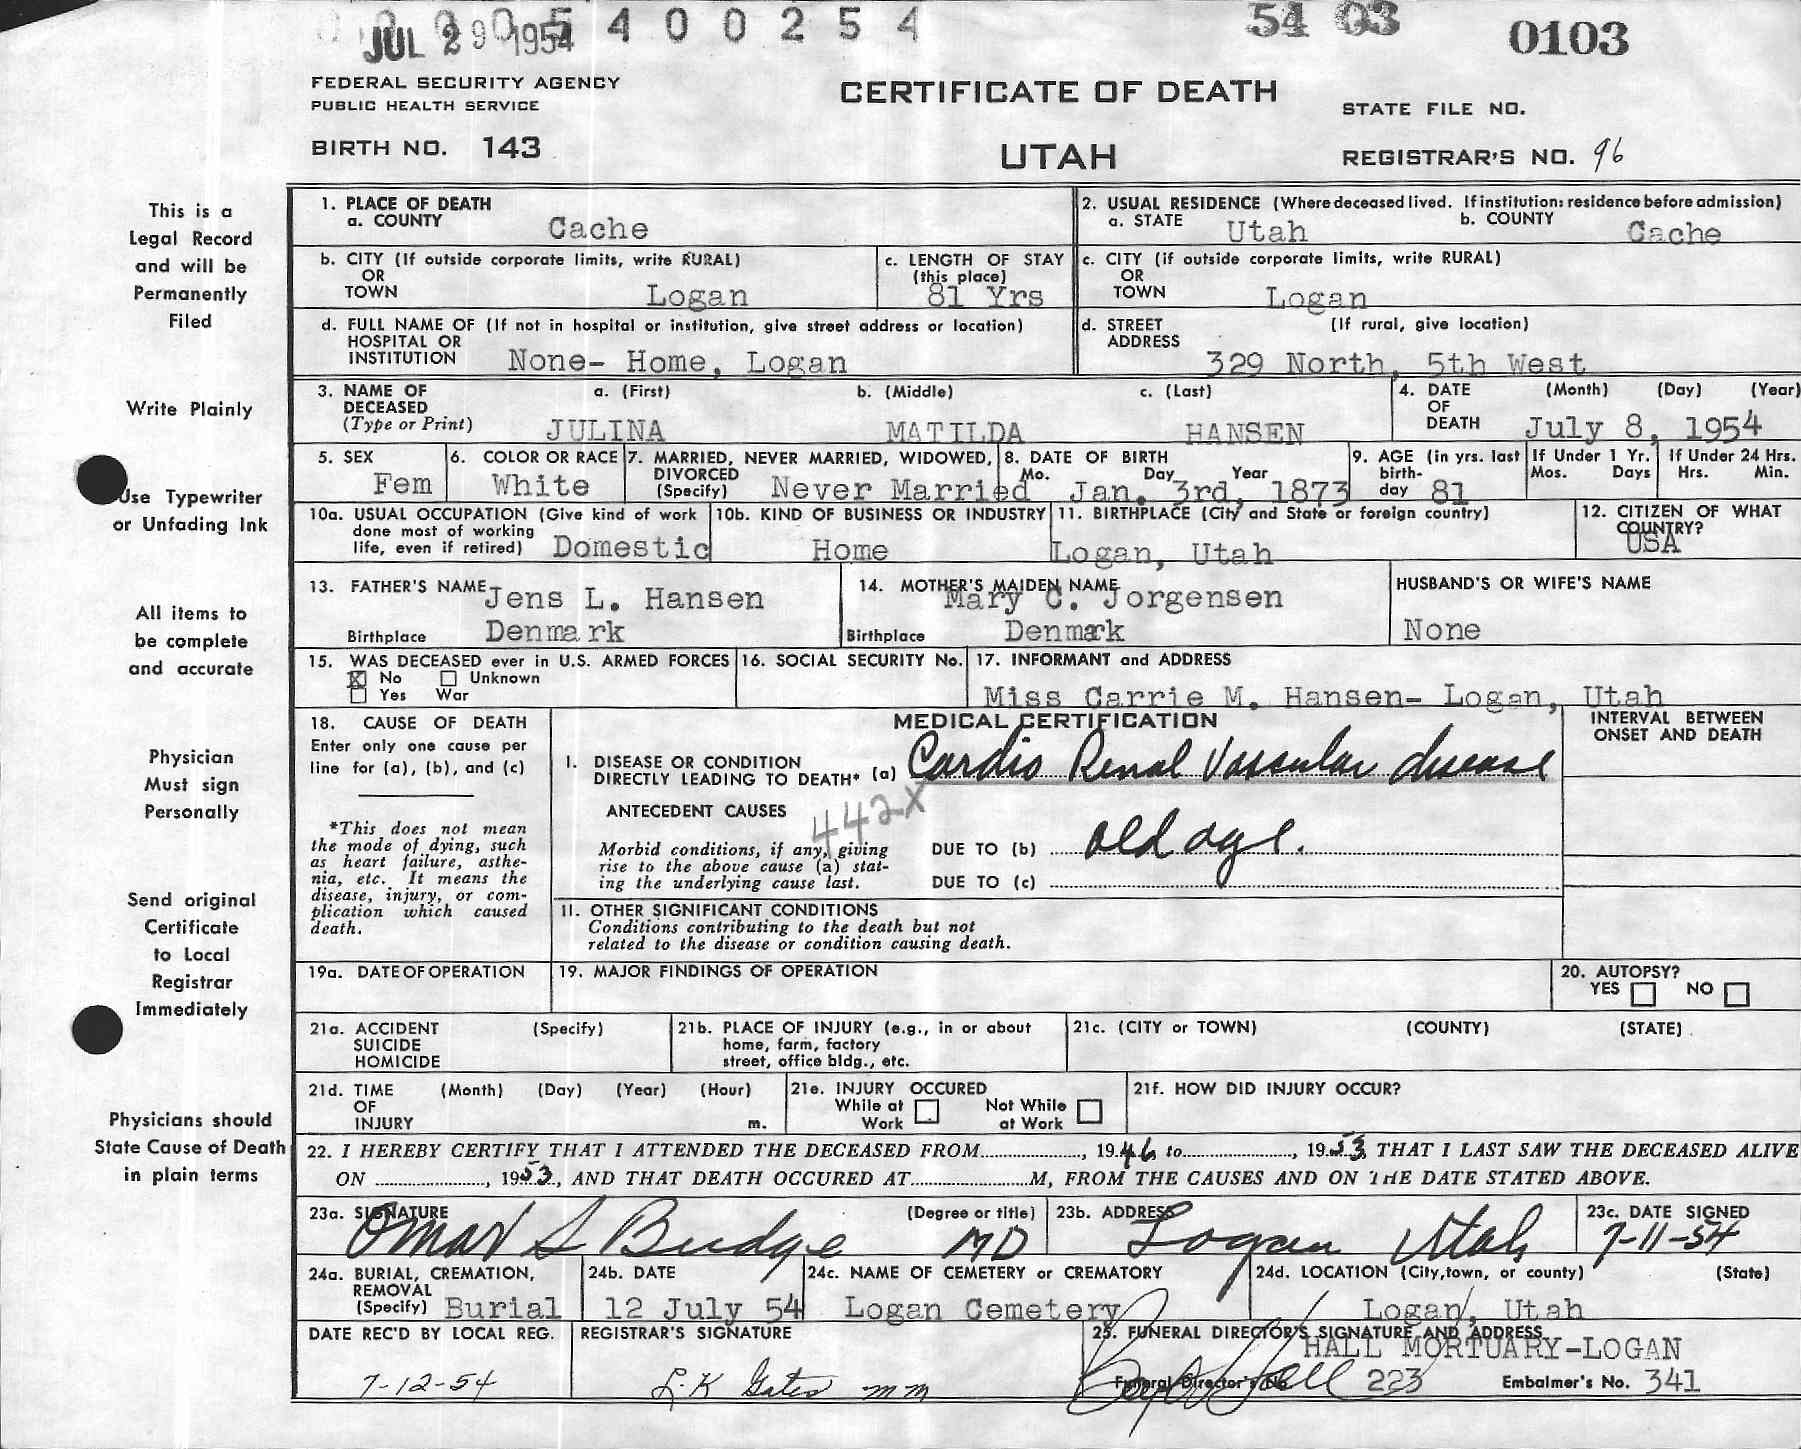 JUL 29 1954
5400254
54 03
0103
FEDERAL SECURITY AGENCY
PUBLIC HEALTH SERVICE
CERTIFICATE OF DEATH
STATE FILE NO.
BIRTH NO. 143
UTAH
REGISTRAR'S NO. 96
This is a
Legal Record
and will be
Permanently
Filed
Write Plainly
Use Typewriter
or Unfading Ink
All items to
be complete
and accurate
Physician
Must sign
Personally
Send original
Certificate
to Local
Registrar
Immediately
Physicians should
State Cause of Death
in plain terms
1. PLACE OF DEATH
a. COUNTY Cache
2. USUAL RESIDENCE (Where deceased lived. If institution: residence before admission)
a. STATE Utah b. COUNTY Cache
b. CITY (If outside corporate limits, write RURAL)
OR
TOWN Logan
c. LENGTH OF STAY
(this place)
81 Yrs
c. CITY (if outside corporate limits, write RURAL)
OR
TOWN Logan
d. FULL NAME OF (If not in hospital or institution, give street address or location)
HOSPITAL OR
INSTITUTION None- Home, Logan
d. STREET (If rural, give location)
ADDRESS
329 North, 5th West
3. NAME OF a. (First) b. (Middle) c. (Last)
DECEASED
(Type or Print) JULINA MATILDA HANSEN
4. DATE (Month) (Day) (Year)
OF
DEATH July 8, 1954
5. SEX
Fem
6. COLOR OR RACE
White
7. MARRIED, NEVER MARRIED, WIDOWED,
DIVORCED
(Specify) Never Married
8. DATE OF BIRTH
Mo. Day Year
Jan. 3rd, 1873
9. AGE (in yrs. last
birth-
day 81
If Under 1 Yr.
Mos. Days
If Under 24 Hrs.
Hrs. Min.
10a. USUAL OCCUPATION (Give kind of work
done most of working
life, even if retired) Domestic
10b. KIND OF BUSINESS OR INDUSTRY
Home
11. BIRTHPLACE (City and State or foreign country)
Logan, Utah
12. CITIZEN OF WHAT
COUNTRY?
USA
13. FATHER'S NAME Jens L. Hansen
Birthplace Denmark
14. MOTHER'S MAIDEN NAME
Mary C. Jorgensen
Birthplace Denmark
HUSBAND'S OR WIFE'S NAME
None
15. WAS DECEASED ever in U.S. ARMED FORCES
X No Unknown
Yes War
16. SOCIAL SECURITY No.
17. INFORMANT and ADDRESS
Miss Carrie M. Hansen- Logan, Utah
18. CAUSE OF DEATH
Enter only one cause per
line for (a), (b), and (c)
*This does not mean
the mode of dying, such
as heart failure, asthe-
nia, etc. It means the
disease, injury, or com-
plication which caused
death.
MEDICAL CERTIFICATION
INTERVAL BETWEEN
ONSET AND DEATH
I. DISEASE OR CONDITION
DIRECTLY LEADING TO DEATH* (a) Cardio Renal Vascular disease
ANTECEDENT CAUSES
442X
Morbid conditions, if any, giving
rise to the above cause (a) stat-
ing the underlying cause last.
DUE TO (b) old age.
DUE TO (c)
II. OTHER SIGNIFICANT CONDITIONS
Conditions contributing to the death but not
related to the disease or condition causing death.
19a. DATE OF OPERATION
19. MAJOR FINDINGS OF OPERATION
20. AUTOPSY?
YES NO
21a. ACCIDENT (Specify)
SUICIDE
HOMICIDE
21b. PLACE OF INJURY (e.g., in or about
home, farm, factory
street, office bldg., etc.
21c. (CITY or TOWN) (COUNTY) (STATE)
21d. TIME (Month) (Day) (Year) (Hour)
OF
INJURY m.
21e. INJURY OCCURED
While at Work Not While at Work
21f. HOW DID INJURY OCCUR?
22. I HEREBY CERTIFY THAT I ATTENDED THE DECEASED FROM............, 1946 to............, 1953 THAT I LAST SAW THE DECEASED ALIVE
ON ............, 1953, AND THAT DEATH OCCURED AT............M, FROM THE CAUSES AND ON THE DATE STATED ABOVE.
23a. SIGNATURE (Degree or title)
Omar S Budge MD
23b. ADDRESS
Logan Utah
23c. DATE SIGNED
7-11-54
24a. BURIAL, CREMATION,
REMOVAL
(Specify) Burial
24b. DATE
12 July 54
24c. NAME OF CEMETERY or CREMATORY
Logan Cemetery
24d. LOCATION (City, town, or county) (State)
Logan, Utah
DATE REC'D BY LOCAL REG.
7-12-54
REGISTRAR'S SIGNATURE
L.K Gates mm
25. FUNERAL DIRECTOR'S SIGNATURE AND ADDRESS
HALL MORTUARY-LOGAN
Funeral Director's No. 223 Embalmer's No. 341